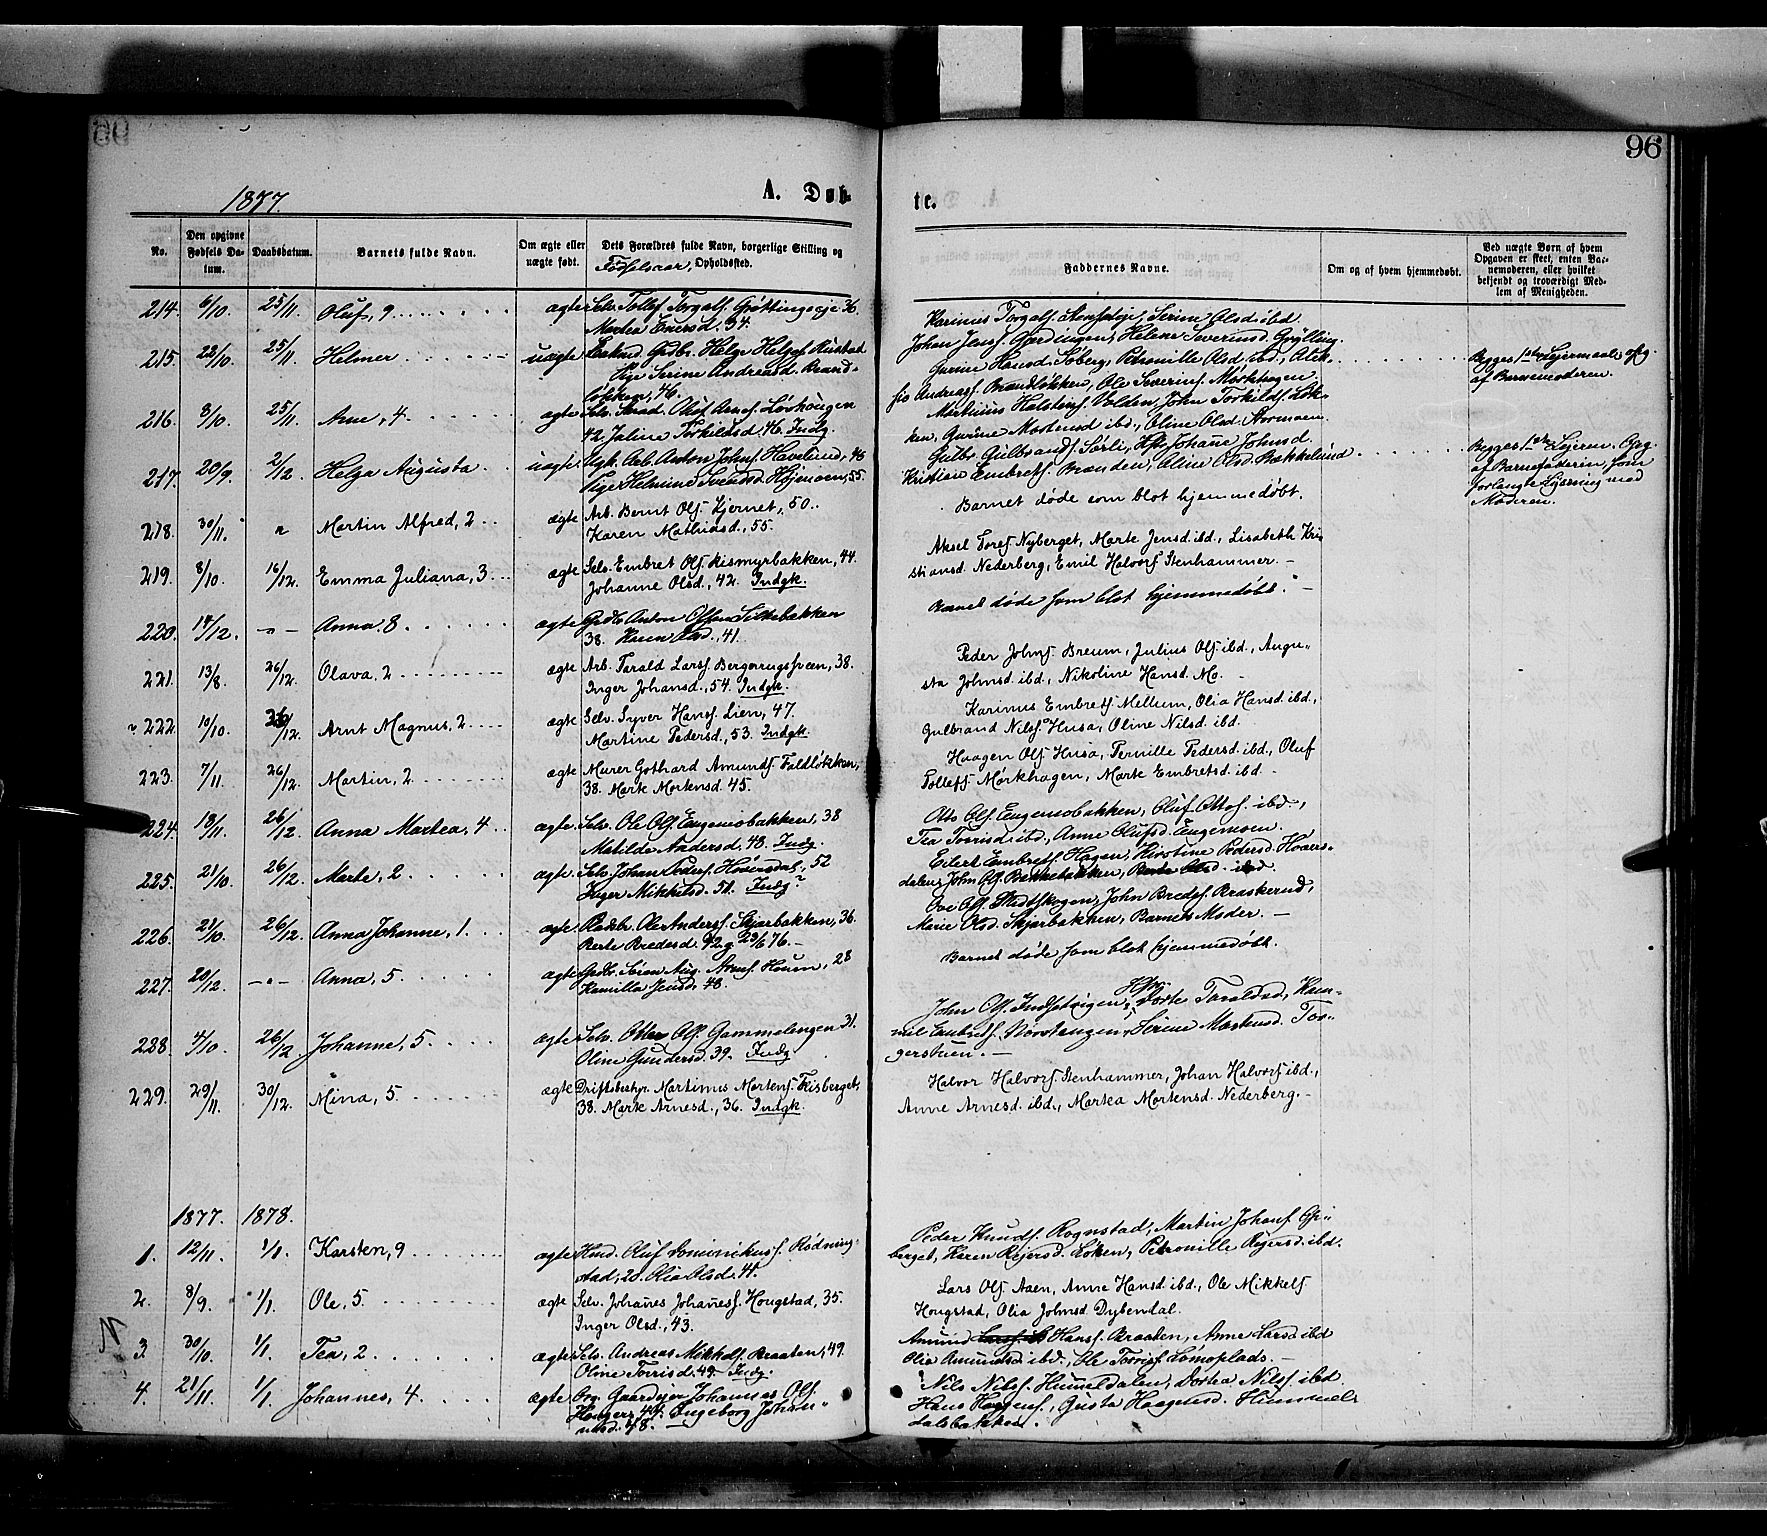 96
1877.
A. Døb-
te.
No.
Den opgivne Fødsels Datum.
Daabsdatum.
Barnets fulde Navn.
Om ægte eller uægte født.
Dets Forældres fulde Navn, borgerlige Stilling og Opholdssted.
Fødselsaar,
Faddernes Navne.
Om og af hvem hjemmedøbt.
Ved uægte Børn af hvem Opgaven er skeet, enten Barnemoderen, eller hvilket bekjendt og troværdigt Medlem af Menigheden.
214. 6/10. 25/11. Oluf, 9 ægte Selv. Tollef Torgalss. Grøttingseje 36
Martea Enersd. 34.
Karinus Torgalss. Serine Olsd ibd
Johan Jenss. Gjerdingen, Helene Severinsd. Grylling
215. 22/10 25/11. Helmer uægte Helge Helges. Rustad
Pige Serine Andreasd. Brand-
løkken, 46.
Gurine Hansd. Søberg, Petronille Olsd ibd., Alek-
sio Andreass. Brandløkken, Ole Severins. Mørkhagen
Begges 1ste Leiermaal. Opg.
af Barnemoderen.
216. 8/10. 25/11. Arne, 4. ægte Selv. Oluf Arnes. Løvhaugen
42. Jaline Torkildsd. 46. Indg.
Martinius Halstens. Volden, John Torkilds. Løk-
ken, Gurine Mortensd ibd, Oline Olsd. Stormoen.
217. 20/9. 2/12. Helga Augusta uægte Ugk. Arb. Anton Johns. Havelund, 48
Pige Helmine Svendsd. Højemoen, 55.
Gulbr. Gulbrands. Sørli, Johane Johnsd.
Kristian Embrets. Brænden, Oline Olsd. Bækkelund
Begges 1ste Leierm. Opg.
af Barnefaderen, som
forlangte Lysning med
Moderen.
218. 30/11. " Martin Alfred, 2 ægte Arb. Bernt Ols. Kjernet, 50.
Karen Mathiasd., 55.
Barnet døde som blot hjemmedøbt.
219. 8/10. 16/12. Emma Juliana, 3 ægte Selv. Embret Ols. Rismyrbakken, 44.
Johanne Olsd., 42. Indgk.
Aksel Tores. Nyberget, Marte Jensd. ibd., Lisabeth Kri-
stiansd. Nederberg, Emil Halvors. Stenhammer. -
220. 14/12. - " - Anna, 8 ægte Gbr. Anton Olsen Silkebakken
38. Karen Olsd., 41.
Barnet døde som blot hjemmedøbt. -
221. 13/8. 26/12. Olava, 2 ægte Arb. Tarald Larss. Bergerengsveen, 38.
Inger Johansd., 54. Indgk.
Peder Johns. Breum, Julius Ols. ibd., Augu-
sta Johnsd. ibd., Nikoline Hansd. Mo. -
222. 10/10. 26/12. Arnt Magnus, 2 ægte Selv. Syver Hans. Lien, 47.
Martine Pedersd., 53. Indgk.
Karinus Embrets. Mellum, Olia Hansd. ibd.,
Gulbrand Nils. Husa, Oline Nilsd. ibd.
223. 7/11. 26/12. Martin, 2 ægte Murer Gothard Amunds. Faldløkken,
38. Marte Mortensd. 45.
Haagen Ols. Husa, Pernille Pedersd. ibd., Oluf
Tollefs. Mørkhagen, Marte Embretsd. ibd. -
224. 18/11. 26/12. Anna Martea, 4 ægte Selv. Ole Ols. Engemobakken, 38
Matilde Andersd. 48. Indg.
Otto Ols. Engemobakken, Oluf Ottos. ibd.,
Tea Torrisd. ibd., Anne Olufsd. Engemoen.
225. 21/10. 26/12. Marte, 2 ægte Selv. Johan Peders. Hoversdal, 52
Inger Mikkelsd. 51. Indg?
Eilert Embrets. Hagen, Kirstine Pedersd. Hovers-
dalen, John Ols. Bakkebakken, Berte Olsd. ibd.
226. 21/10. 26/12. Anna Johanne, 1. ægte Pladsbr. Ole Anders. Skjærbakken, 36.
Berte Bredesd. 42 g 23/6 76. -
Ove Ols. Stadtskogen, John Bredes. Braskerud,
Marie Olsd. Skjærbakken, Barnets Moder. -
227. 20/12. - " - Anna, 5 ægte Gbr. Søren Aug. Arnes. Houm, 28
Kamilla Jensd. 48.
Barnet døde som blot hjemmedøbt.
228. 4/10. 26/12 Johanne, 5. ægte Selv. Otter Ols. Gammelengen 31.
Oline Gundersd. 39. Indg
John Ols. Indsetvigen, Dorte Taraldsd,
Embrets. Norstengen, Serine Mortensd. Tor-
gerstuen. -
229. 29/11. 30/12. Mina, 5. ægte Driftsbestyr. Martinus Mortens. Fiskberget,
38. Marte Arnesd., 36. Indgk.
Halvor Halvors. Stenhammer, Johan Halvors. ibd.,
Anne Arnesd. ibd., Martea Mortensd. Nederberg. -
1877. 1878.
1. 12/11. 1/1. Karsten, 9 ægte Hmd. Oluf Dominikuss. Rødning-
stad, 20. Olia Olsd. 41.
Peder Knuds. Rognstad, Martin Johans.
berget, Karen Reiersd. Løken, Petronille Reiersd. ibd.
2. 8/9. 1/1. Ole, 5. ægte Selv. Johanes Johaness. Hougstad, 35.
Inger Olsd., 43.
Lars Ols. Aaen, Anne Hansd. ibd., Ole Mikkels.
Hougstad, Olia Johnsd. Dybendal.
N 3. 30/10. 1/1. Tea, 2. ægte Selv. Andreas Mikkels. Braaten, 49.
Oline Torrisd. 49. Indg.
Amund Hans. Braaten, Anne Larsd ibd
Olia Amundsd. ibd., Ole Torris. Lømoplads. -
4. 21/11. 1/1. Johannes, 4. ægte Gaardejer Johannes Ols.
Hougen, 44. Ingeborg Johan-
nesd. 48.
Nils Nils. Hummeldalen, Dortea Nilsd. ibd.
Hans Haagens., Gusta Haagensd. Hummel-
dalsbakken.